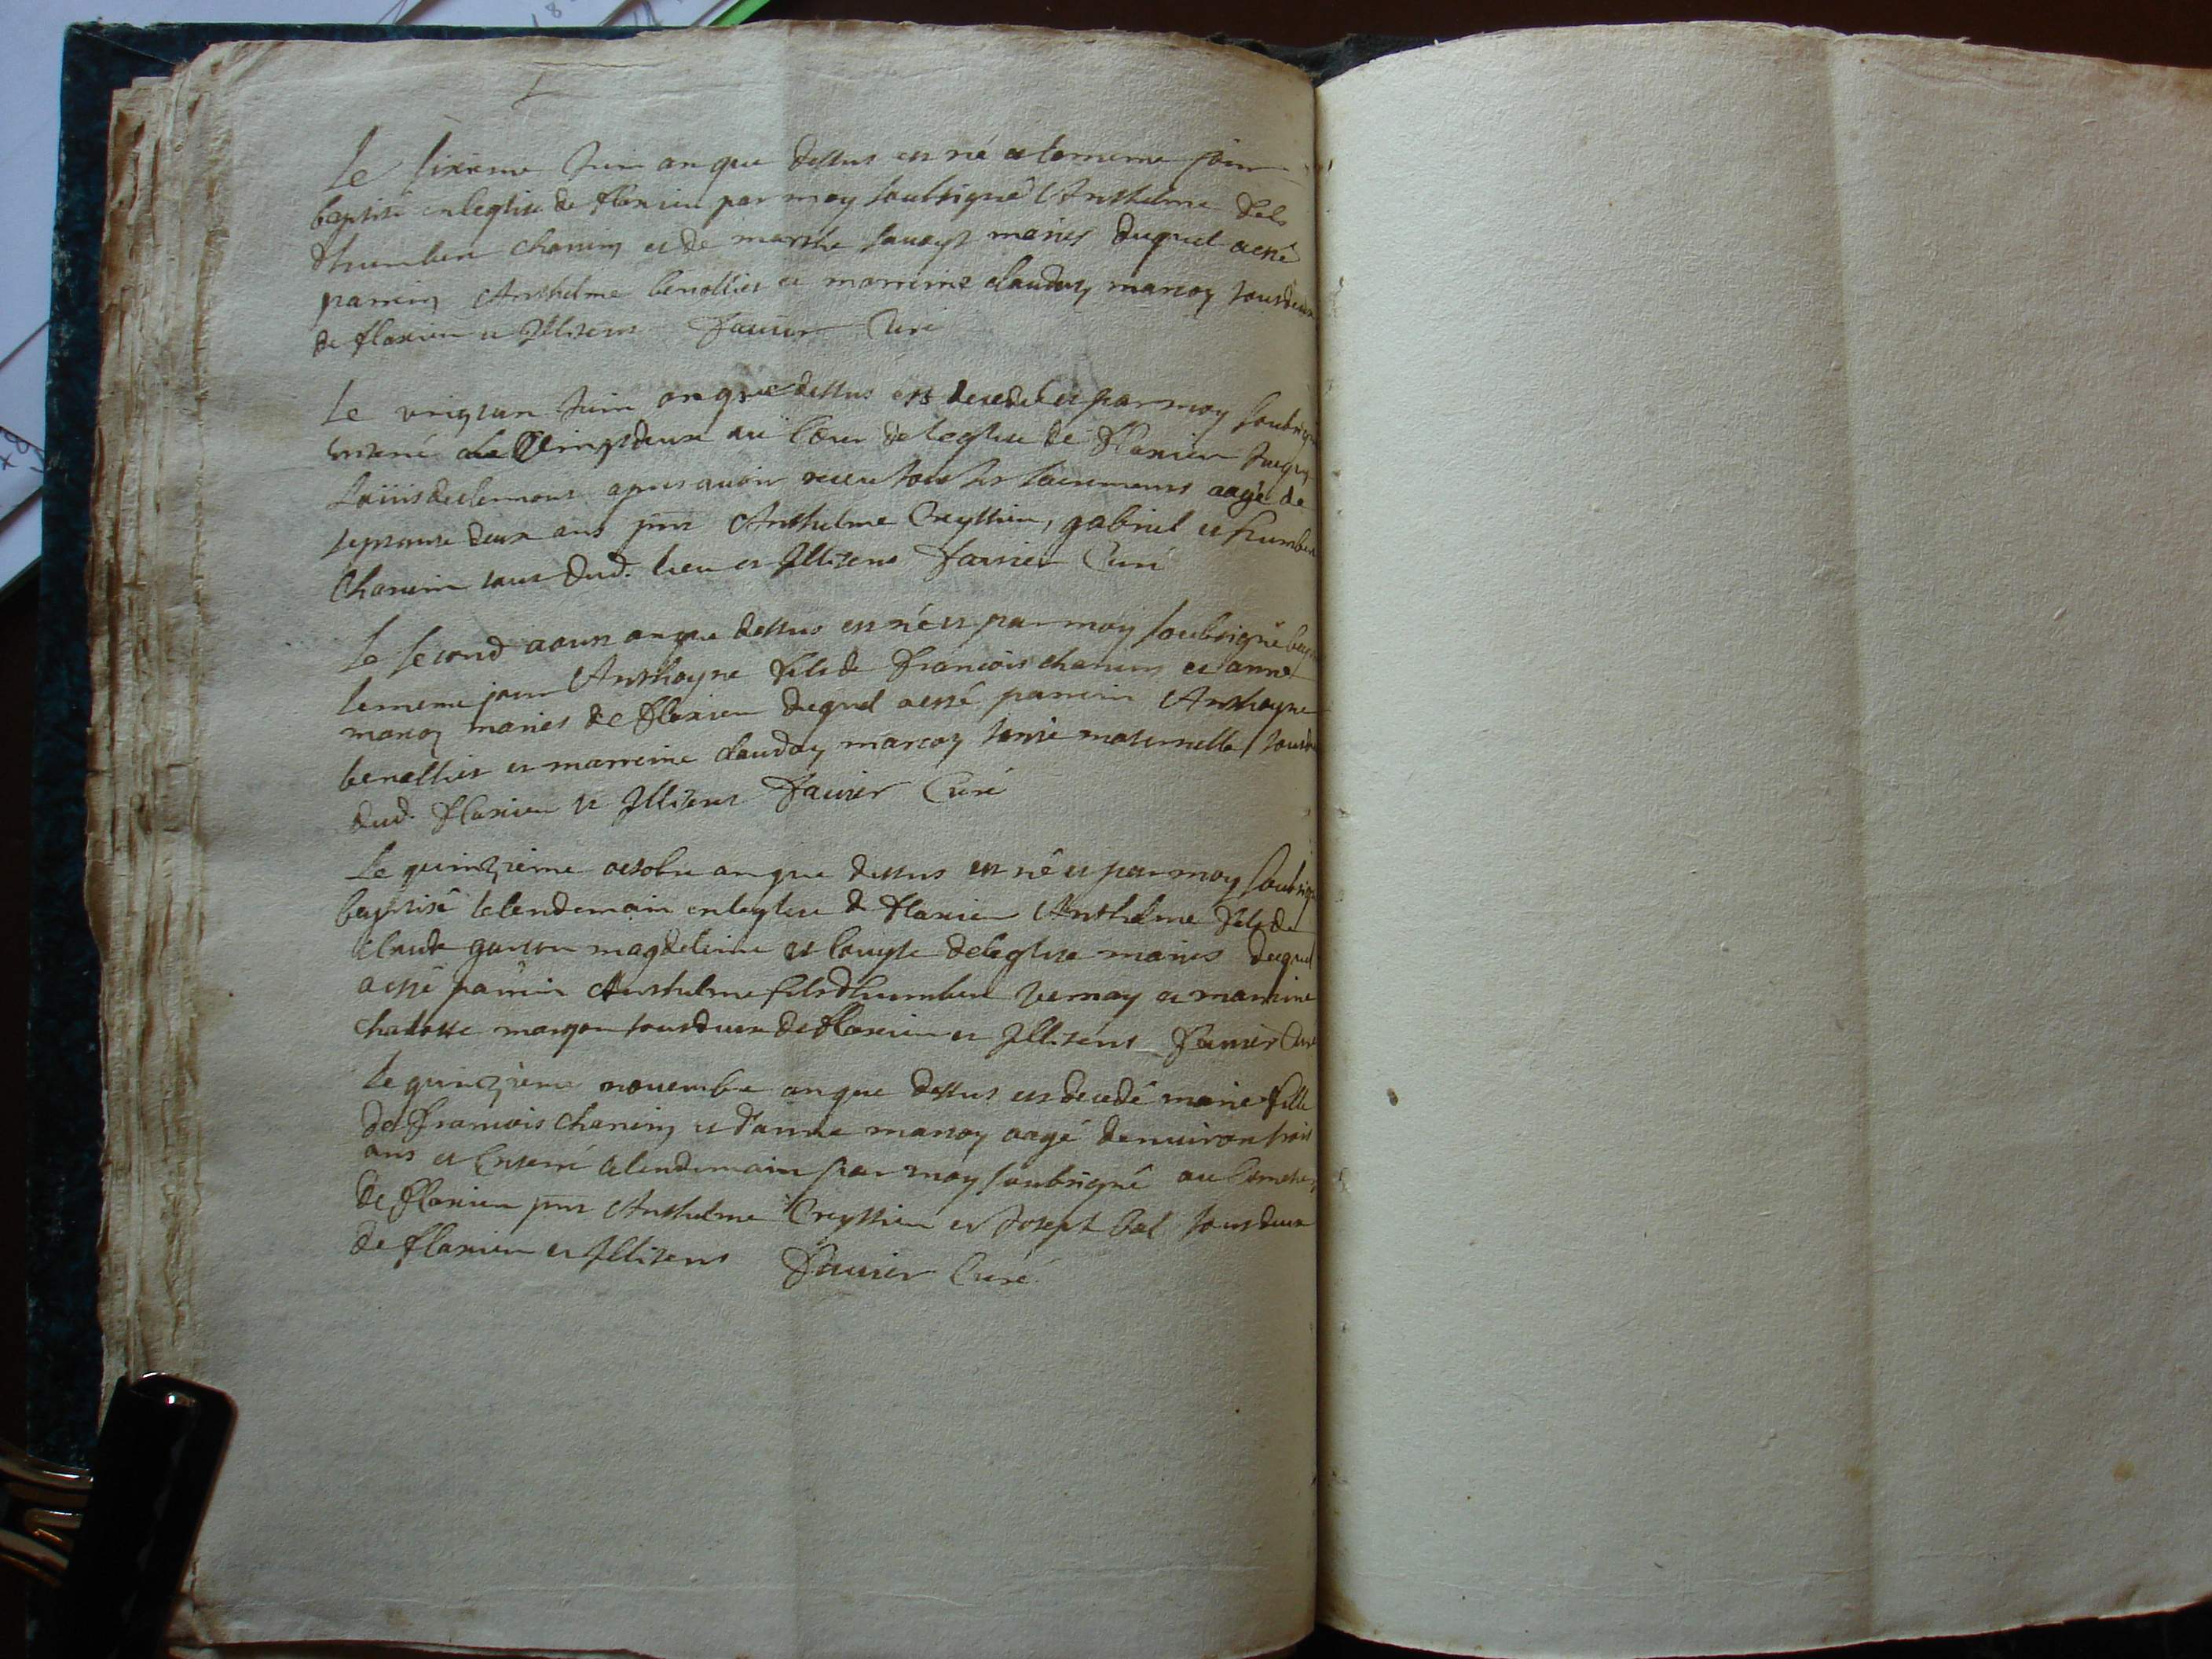 Le sixieme Juin an que dessus est né et le meme jour
baptisé en leglise de flaxieu par moy soubsigné Anthelme fils
dhumber chanin et de marthe mariés duquel a esté
parrin Anthelme benollier et marreine claudaz marcoz tous deux
de flaxieu et Illiterés Favier Curé
Le vingt un Juin an que dessus est decedé et par moy soubsigné
enterré le vingt deux au Cœur de leglise de flaxieu
apres avoir receu tous les sacrements aagé de
septante deux ans pnt Anthelme Creyssieu, gabriel et humber
Chanin tous dud. lieu et Illiterés Favier Curé
Le second aoust an que dessus est né et par moy soubsigné
le meme jour Anthoyne fils de françois chanin et anne
marcoz mariés de flaxieu duquel a esté parrin Anthoyne
benollier et marreine claudaz marcoz tante maternelle
dud. flaxieu et Illiterés Favier Curé
Le quinzieme octobre an que dessus est né et par moy soubsigné
baptisé le lendemain en leglise de flaxieu Anthelme fils de
claude magdeleine et louyse deleglise mariés duquel
a esté parrin Anthelme fils dhumber vernay et marreine
tous deux de flaxieu et Illiterés Favier Curé
Le quinzieme novembre an que dessus est decedé marie fille
de françois chanin et danne marcoz aagé denviron trois
ans et Enterré le lendemain par moy soubsigné au Cimetier
de flaxieu pnt Anthelme Creyssieu et Joseph bal tous deux
de flaxieu et Illiterés Favier Curé